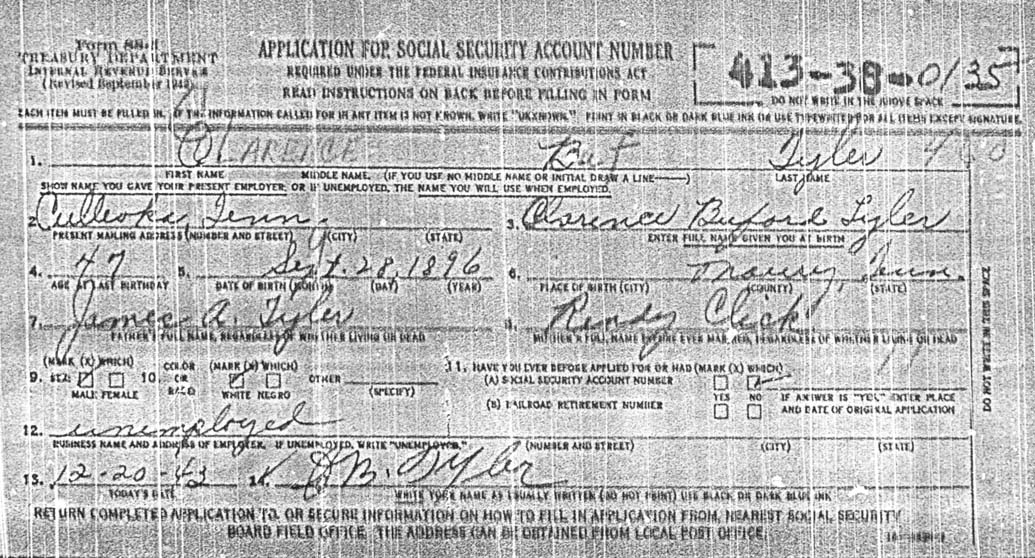 Form SS-5
TREASURY DEPARTMENT
INTERNAL REVENUE SERVICE
(Revised September 1942)
APPLICATION FOR SOCIAL SECURITY ACCOUNT NUMBER
REQUIRED UNDER THE FEDERAL INSURANCE CONTRIBUTIONS ACT
READ INSTRUCTIONS ON BACK BEFORE FILLING IN FORM
413-38-0135
DO NOT WRITE IN THE ABOVE SPACE
EACH ITEM MUST BE FILLED IN. IF THE INFORMATION CALLED FOR IN ANY ITEM IS NOT KNOWN, WRITE "UKKNOWN." PRINT IN BLACK OR DARK BLUE INK OR USE TYPEWRITER FOR ALL ITEMS EXCEPT SIGNATURE.
1. CLARENCE Buf Tyler
FIRST NAME MIDDLE NAME. (IF YOU USE NO MIDDLE NAME OR INITIAL DRAW A LINE——) LAST NAME
SHOW NAME YOU GAVE YOUR PRESENT EMPLOYER, OR IF UNEMPLOYED, THE NAME YOU WILL USE WHEN EMPLOYED.
2. Culleoka, Tenn. 3. Clarence Buford Tyler
PRESENT MAILING ADDRESS (NUMBER AND STREET) (CITY) (STATE) ENTER FULL NAME GIVEN YOU AT BIRTH
4. 47 5. Sept. 28, 1896 6. Maury, Tenn.
AGE AT LAST BIRTHDAY DATE OF BIRTH (MONTH) (DAY) (YEAR) PLACE OF BIRTH (CITY) (COUNTY) (STATE)
7. James A. Tyler 8. Rendy Click
FATHER'S FULL NAME, REGARDLESS OF WHETHER LIVING OR DEAD MOTHER'S FULL NAME BEFORE EVER MARRIED, REGARDLESS OF WHETHER LIVING OR DEAD
9. SEX: (MARK (X) WHICH) MALE FEMALE 10. COLOR OR RACE (MARK (X) WHICH) WHITE NEGRO OTHER (SPECIFY)
11. HAVE YOU EVER BEFORE APPLIED FOR OR HAD (MARK (X) WHICH)
(A) SOCIAL SECURITY ACCOUNT NUMBER
YES NO IF ANSWER IS "YES," ENTER PLACE
(B) RAILROAD RETIREMENT NUMBER AND DATE OF ORIGINAL APPLICATION
12. unemployed
BUSINESS NAME AND ADDRESS OF EMPLOYER. IF UNEMPLOYED, WRITE "UNEMPLOYED." (NUMBER AND STREET) (CITY) (STATE)
13. 12-20-43 14. B. Tyler
TODAY'S DATE WRITE YOUR NAME AS USUALLY WRITTEN (DO NOT PRINT) USE BLACK OR DARK BLUE INK
RETURN COMPLETED APPLICATION TO, OR SECURE INFORMATION ON HOW TO FILL IN APPLICATION FROM, NEAREST SOCIAL SECURITY
BOARD FIELD OFFICE. THE ADDRESS CAN BE OBTAINED FROM LOCAL POST OFFICE.
DO NOT WRITE IN THIS SPACE